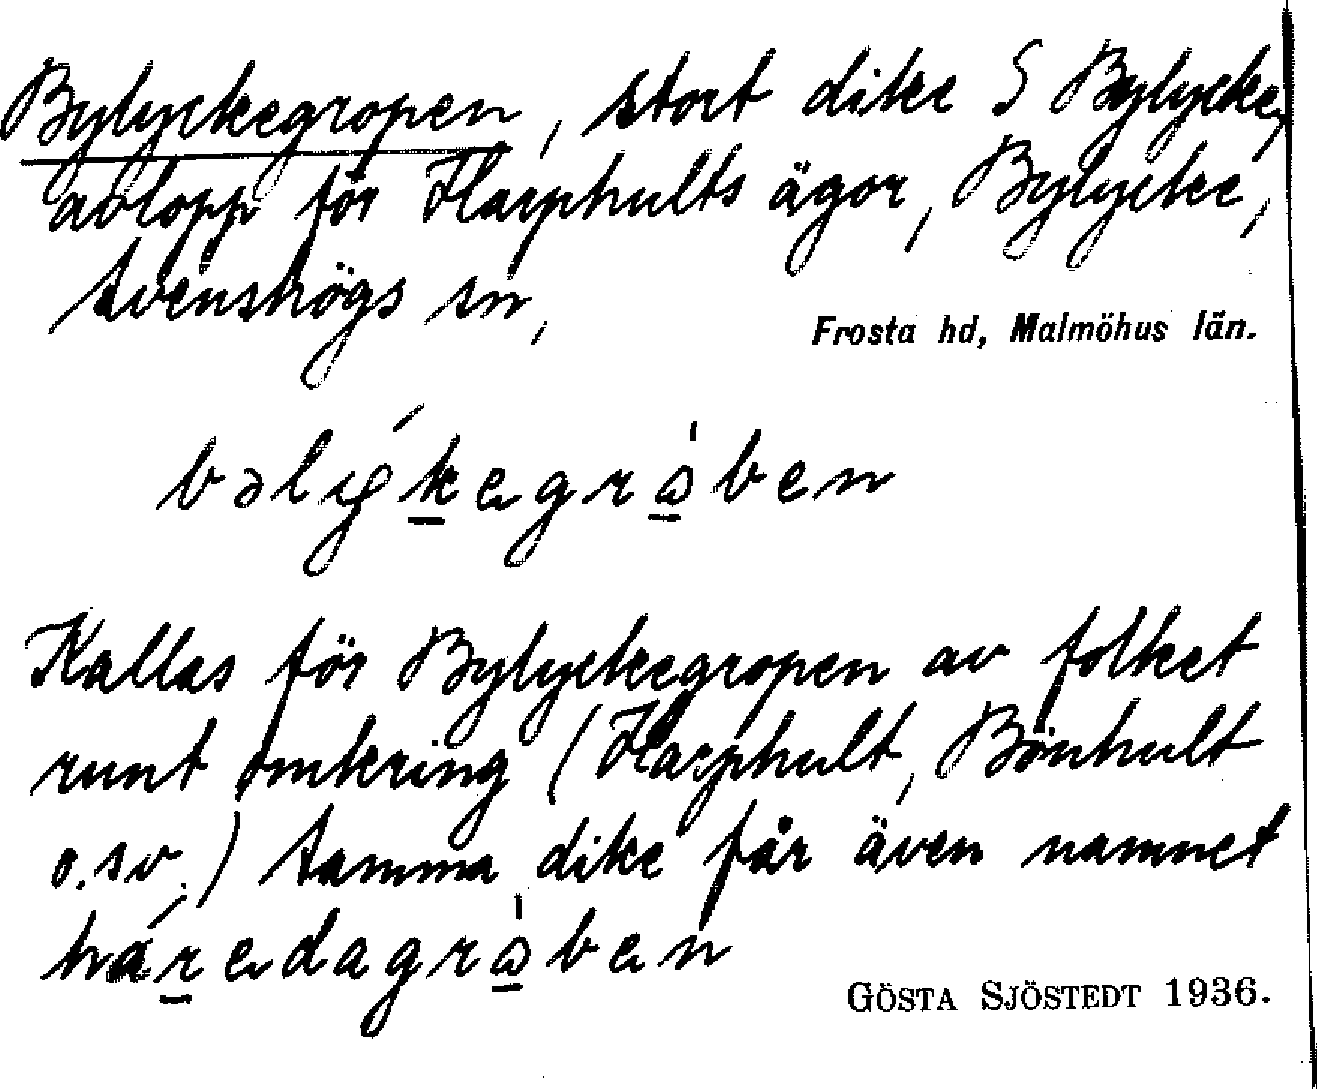 Bylyckegropen, stort dike S Bylycke,
avlopp för Harphults ägor, Bylycke,
Svenskögs sn,
Frosta hd, Malmöhus län.
bəlýkegråben
Kallas för Bylyckegropen av folket
runt omkring (Harphult, Bönhult
o.sv.) Samma dike får även namnet
háredagråben
GÖSTA SJÖSTEDT 1936.